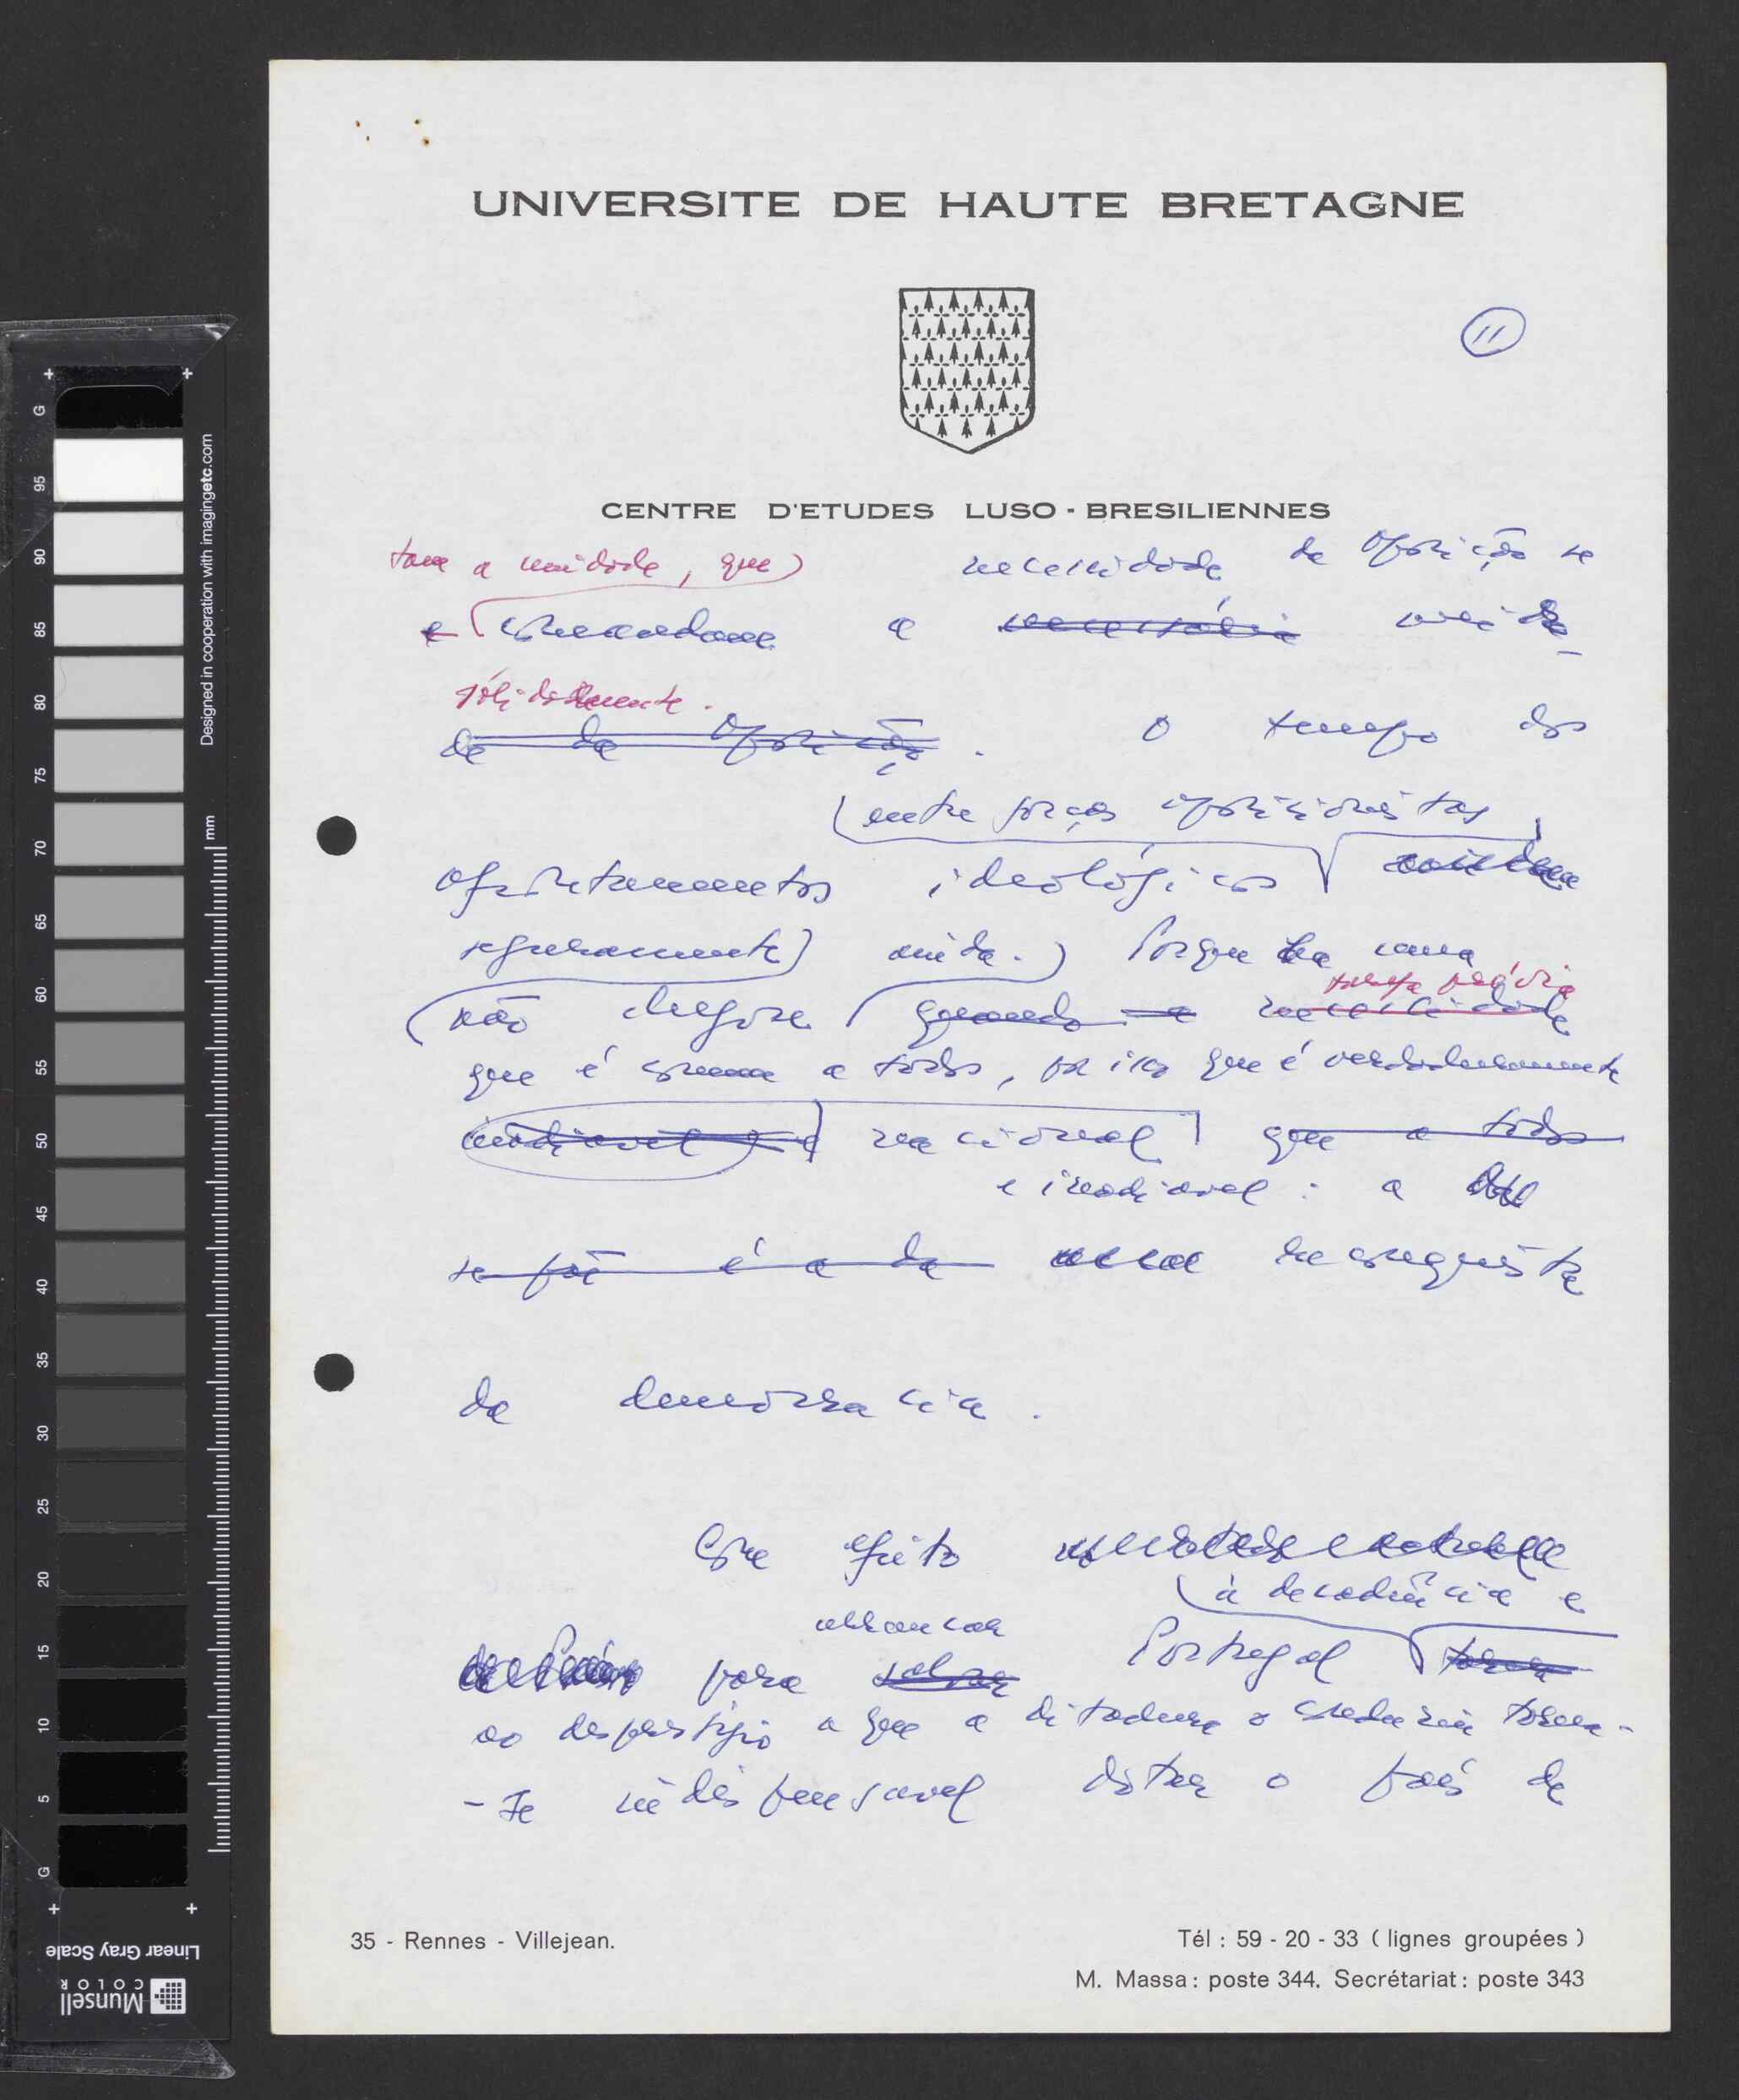 UNIVERSITE DE HAUTE BRETAGNE
11
CENTRE D'ETUDES LUSO - BRESILIENNES
tam a unidade, que
necessidade da Oposição se
e comandam a necessária unida-
sólidamente.
de da Oposição. O tempo dos
entre forças oposicionistas,
afrontamentos ideológicos
seguramente ainda. Porque há uma
tarefa prévia
não chegou quando a necessidade
que é comum a todos, por isso que é verdadeiramente
inadiavel e nacional que a todos
e inadiavel: a
se põe é a da reconquista
da democracia.
Com efeito
à decadência e
arrancar
para salvar Portugal
ao desprestígio a que a ditadura o conduziu torna-
-se indispensavel dotar o país de
35 - Rennes - Villejean.
Tél : 59 - 20 - 33 ( lignes groupées )
M. Massa : poste 344. Secrétariat : poste 343
G
95
90
85
80
75
70
65
60
55
50
45
40
35
30
25
20
15
10
5
G
mm
Designed in cooperation with imagingetc.com
Linear Gray Scale
Munsell
COLOR